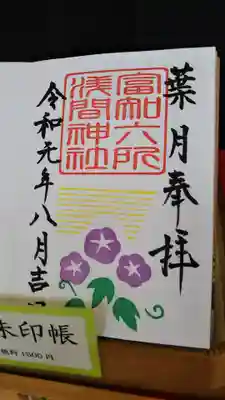 葉月奉拝
富知六所
浅間神社
令和元年八月吉
朱印帳
1000円